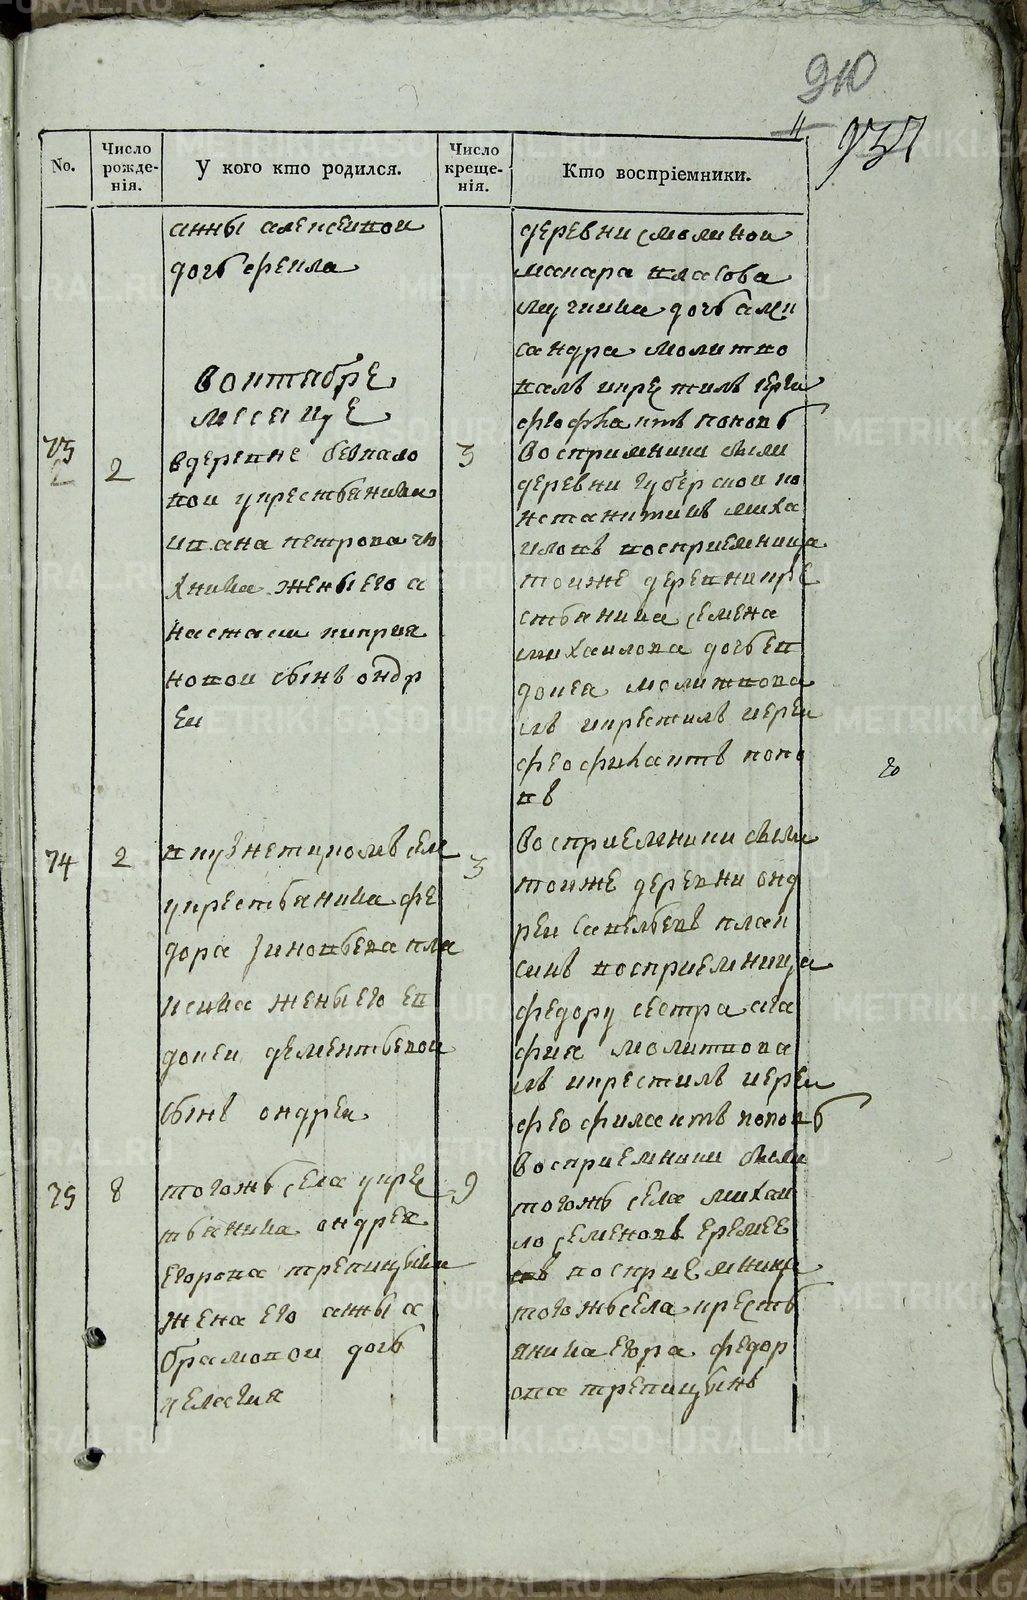 910
11
937
No.
Число рожденія.
У кого кто родился.
Число крещенія.
Кто воспріемники.
анны алексеивои
дочь фекла
деревни смолинои
макара власова
дочь алек
сандра молитво
валъ икрестилъ иереи
феофилактъ поповъ
воктябре
месеце
73
2
вдеревне
вои укрестьянина
ивана петрова
жены его а
настаси киприя
новои сынъ ондр
еи
3
восприемники были
деревни губерскои ко
нстантинъ миха
иловъ восприемница
тоиже деревни кре
стьянина семена
михаилова дочь ев
докея молитвова
лъ икрестилъ иереи
феофилактъ попо
въ
74
2
укрестьянина фе
дора зиновьева пла
ксина жены его ев
докеи дементьевои
сынъ ондреи
3
восприемники были
тоиже деревни онд
реи савельевъ плак
синъ восприемница
федору сестра ага
фия молитвова
лъ икрестилъ иереи
феофилактъ поповъ
75
8
тогожъ села укрес
тьянина ондрея
егорова трепицына
жена его анны а
брамовои дочь
пелагия
9
восприемники были
тогожъ села михаи
ло семеновъ еремее
въ восприемница
тогожъ села кресть
янина егора федор
ова трепицынъ
METRIKI.GASO-URAL.RU